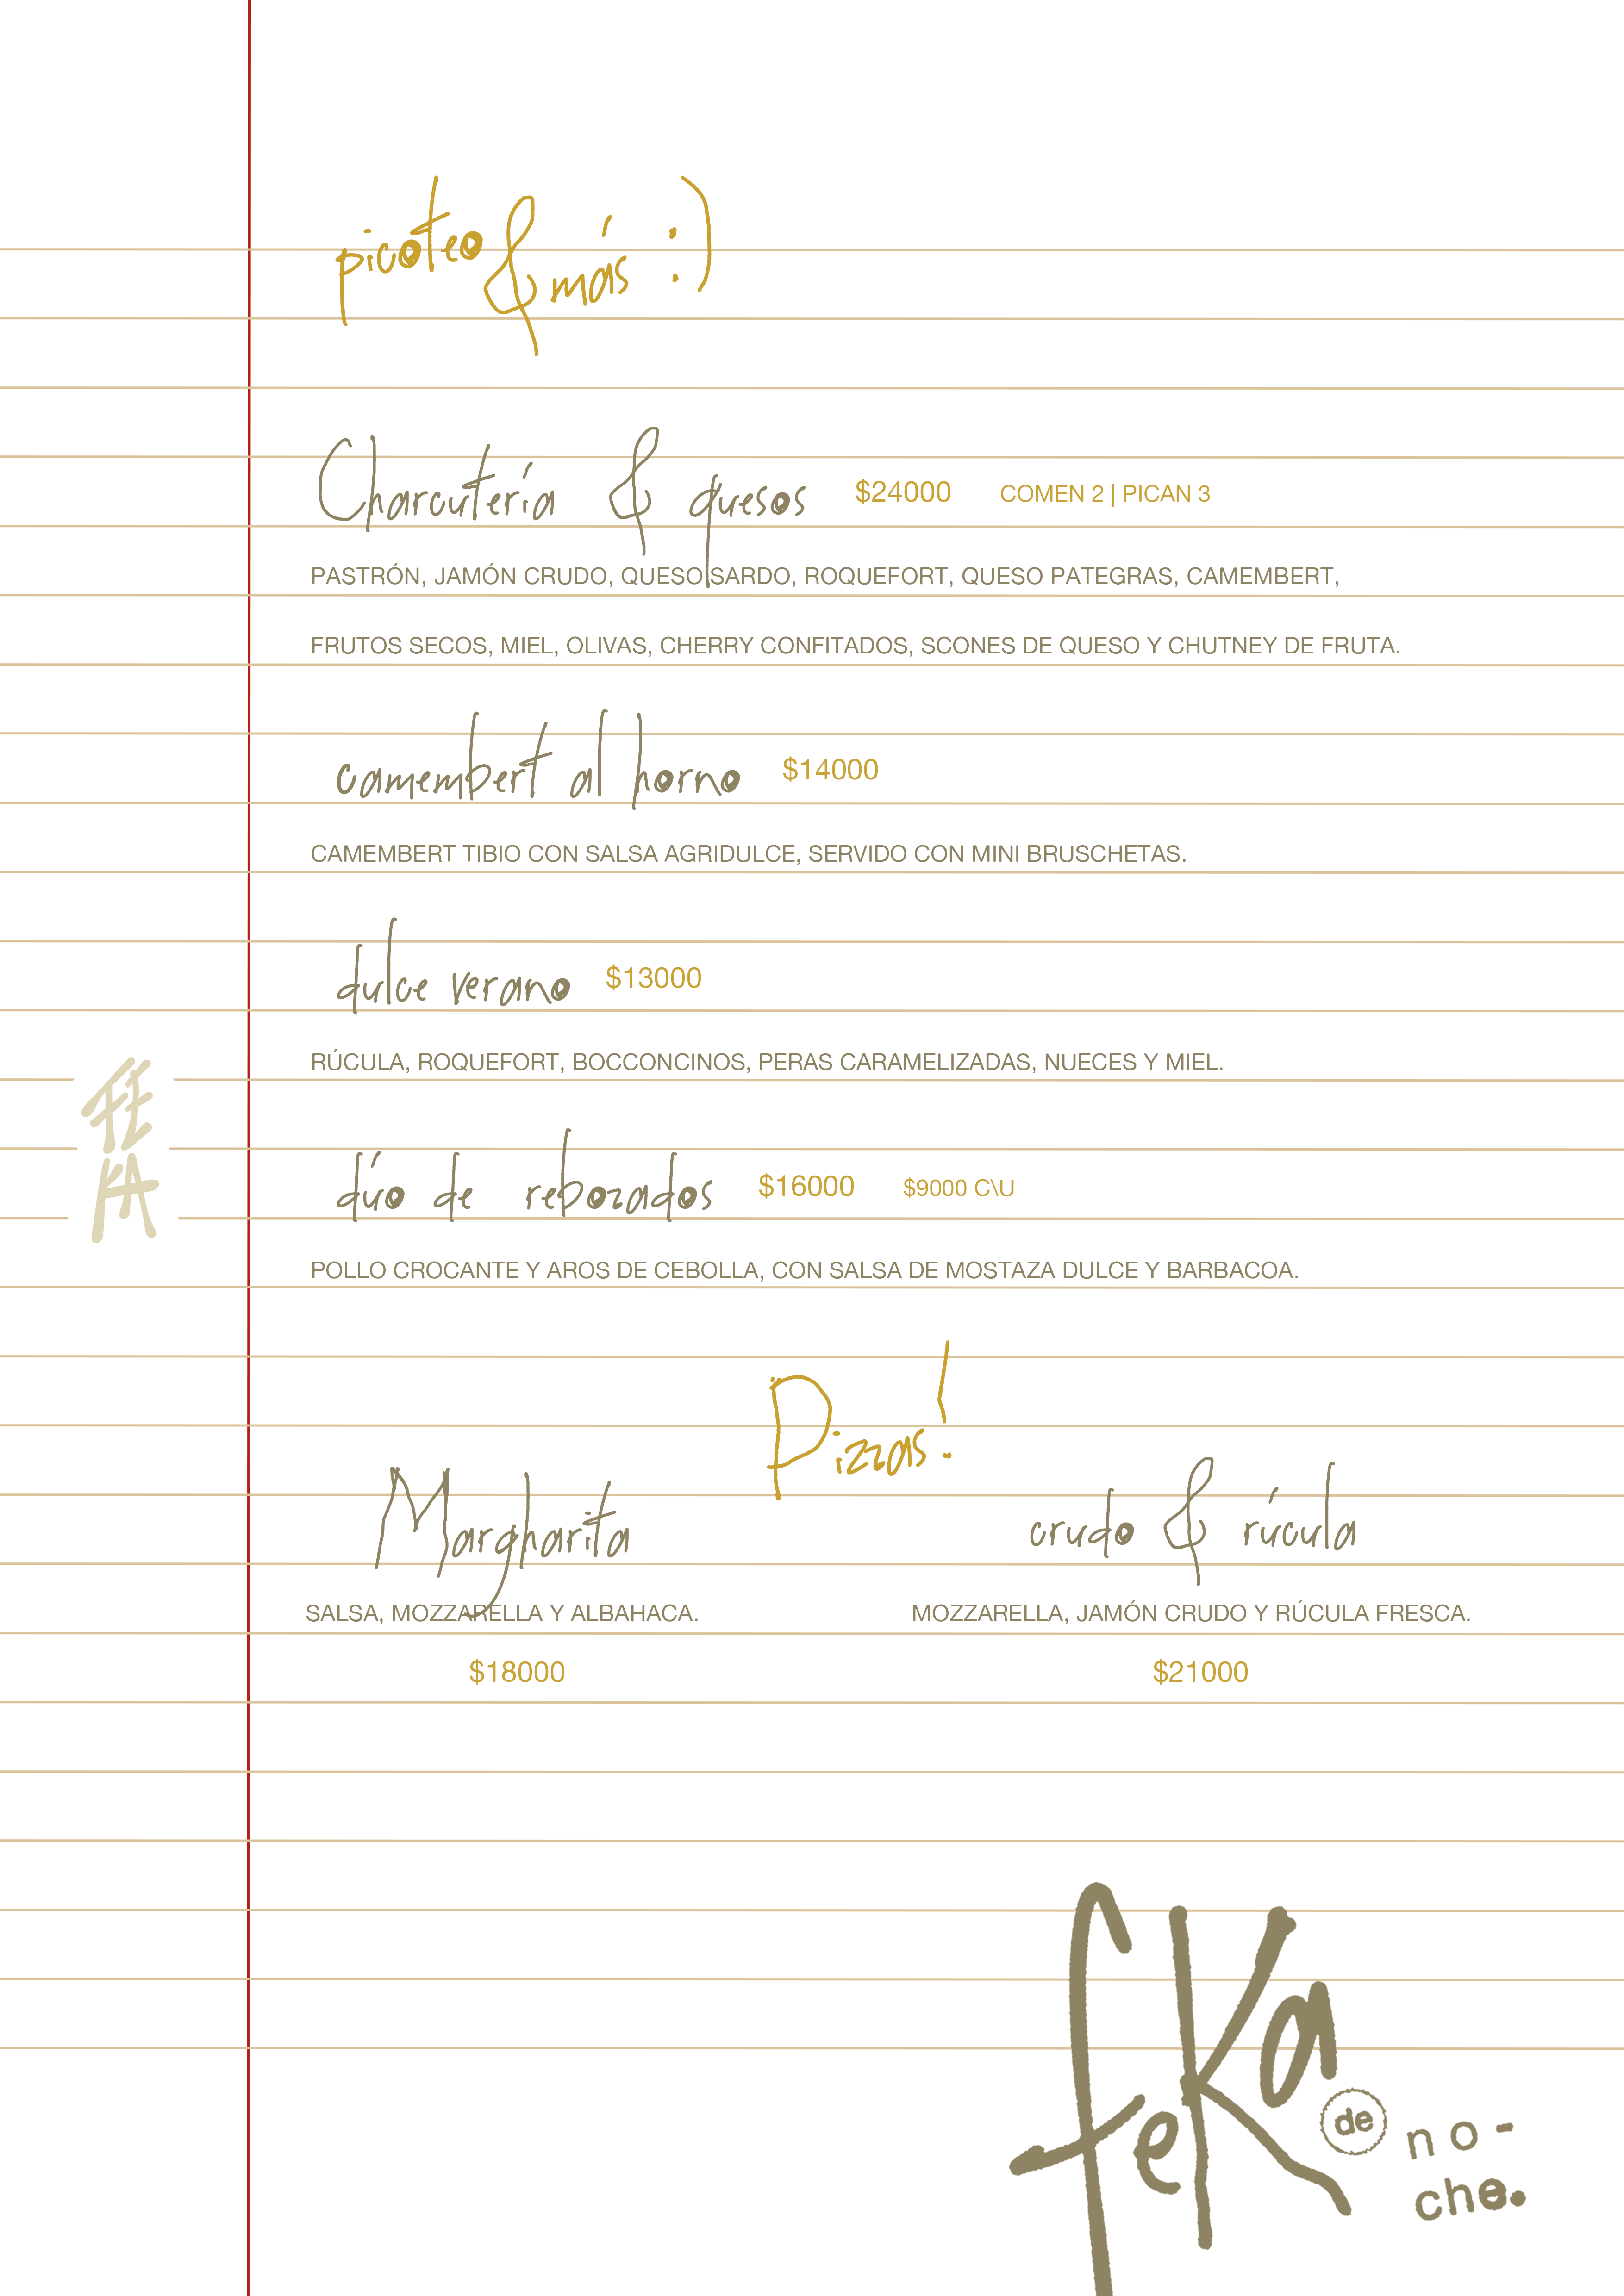 picoteo & más :)
Charcutería & quesos $24000 COMEN 2 | PICAN 3
PASTRÓN, JAMÓN CRUDO, QUESO SARDO, ROQUEFORT, QUESO PATEGRAS, CAMEMBERT,
FRUTOS SECOS, MIEL, OLIVAS, CHERRY CONFITADOS, SCONES DE QUESO Y CHUTNEY DE FRUTA.
camembert al horno $14000
CAMEMBERT TIBIO CON SALSA AGRIDULCE, SERVIDO CON MINI BRUSCHETAS.
dulce verano $13000
RÚCULA, ROQUEFORT, BOCCONCINOS, PERAS CARAMELIZADAS, NUECES Y MIEL.
FE
KA
dúo de rebozados $16000 $9000 C\U
POLLO CROCANTE Y AROS DE CEBOLLA, CON SALSA DE MOSTAZA DULCE Y BARBACOA.
Pizzas!
Margharita
SALSA, MOZZARELLA Y ALBAHACA.
$18000
crudo & rúcula
MOZZARELLA, JAMÓN CRUDO Y RÚCULA FRESCA.
$21000
feKa
de
no-
che.